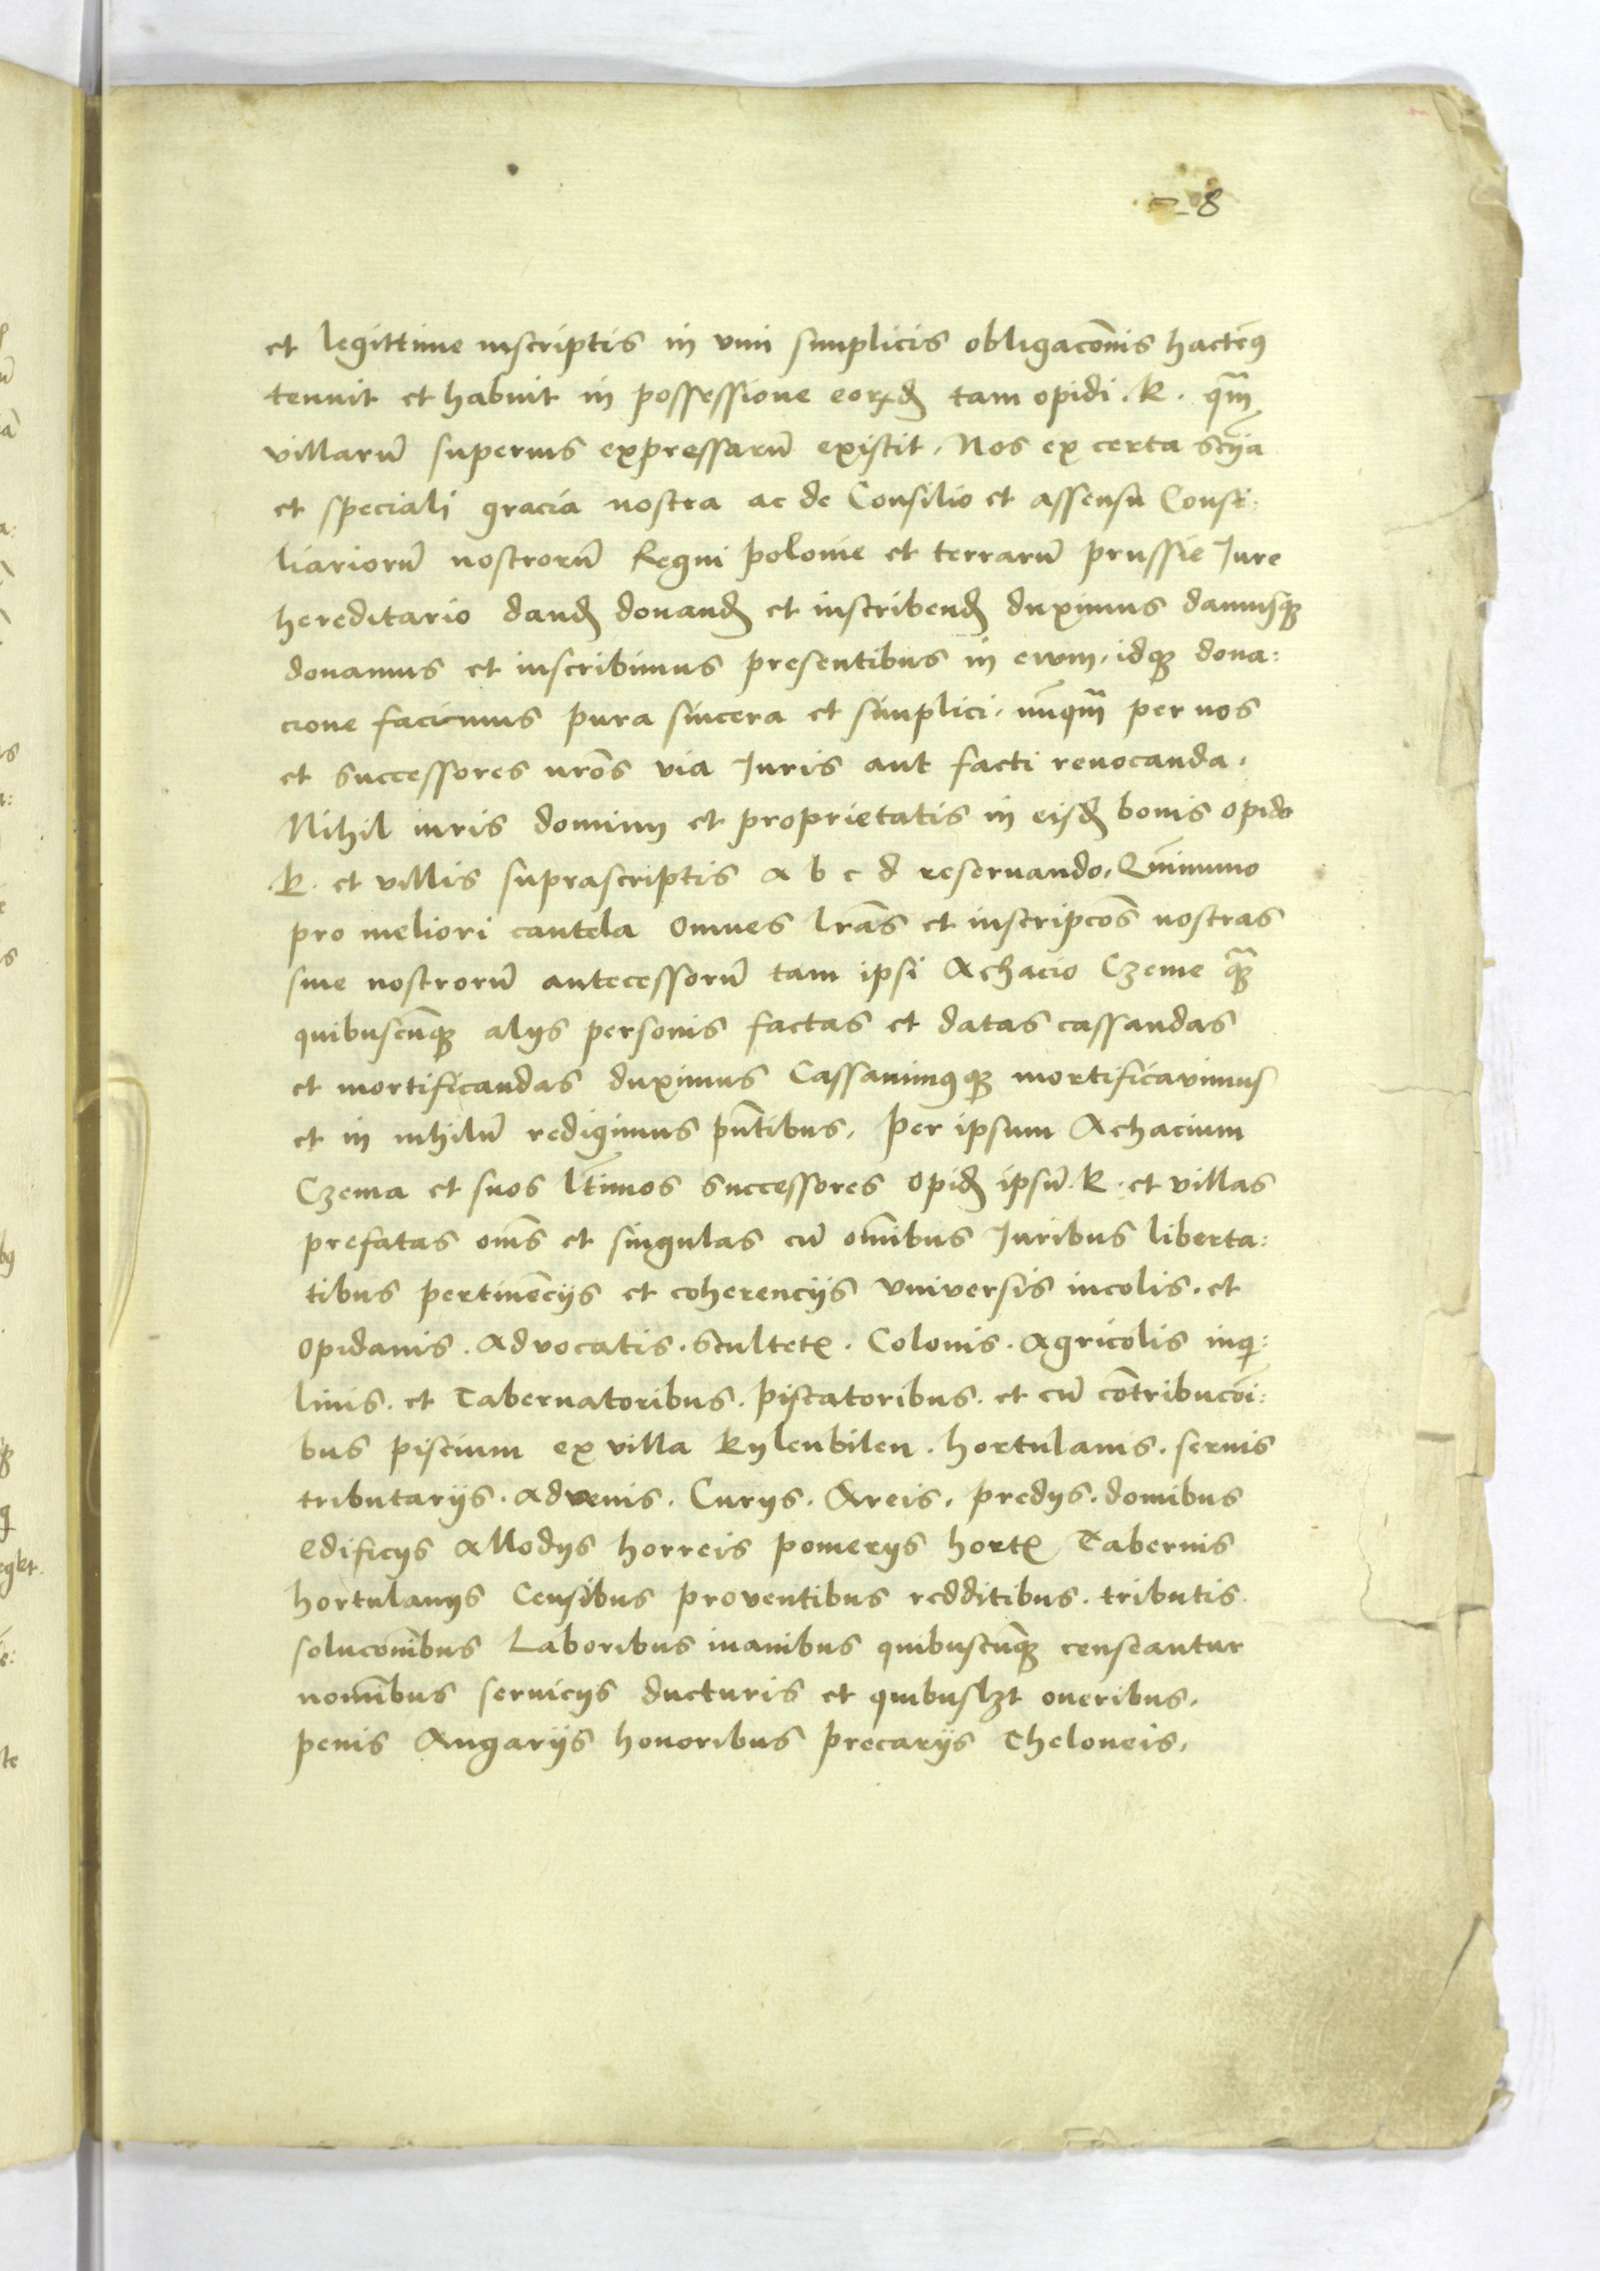 8
et legittime inscriptis in vim simplicis obligacōnis hacten9
tenuit et habuit in possessione eorūd tam opidi . k . qm̄
villarū superius expressarū existit . Nos ex certa scīa
et speciali gracia nostra ac de Consilio et assensu Consi:
liariorū nostrorū Regni polonie et terrarū prussie Jure
hereditario dand donand et inscribend duximus damusq
donamus et inscribimus presentibus in ewm . idq dona:
cione facimus pura sincera et simplici . nūqm̄ per nos
et successores nrōs via Juris aut facti revocanda .
Nihil iuris dominij et proprietatis in eisd bonis opido
. k . et villis suprascriptis a b c d reservando . Quinimmo
pro meliori cautela omnes lrās et inscripcōs nostras
sive nostrorū antecessorū tam ipsi Achacio Czeme qm̄
quibuscūq alijs personis factas et datas cassandas
et mortificandas duximus Cassavim9q mortificavimus
et in nihilū redigimus pn̄tibus . per ipsum Achacium
Czema et suos lt̄imos successores opid ipsū . k . et villas
prefatas om̄s et singulas cū om̄ibus Juribus liberta:
tibus pertinēcijs et coherencijs vniversis incolis . et
opidanis . advocatis . scultet . Colonis . Agricolis inqi:
linis . et Tabernatoribus . piscatoribus . et cū cōtribucōi:
bus piscium ex villa kylenbilen . hortulanis . servis
tributarijs . advenis . Curijs . Areis . predijs . domibus
edificijs Allodijs horreis pomerijs hort Tabernis
hortulanijs Censibus proventibus redditibus . tributis .
solucōnibus Laboribus inanibus quibuscūq censeantur
nomībus servicijs ducturis et quibuslzt oneribus .
penis Angarijs honoribus precarijs Theloneis .